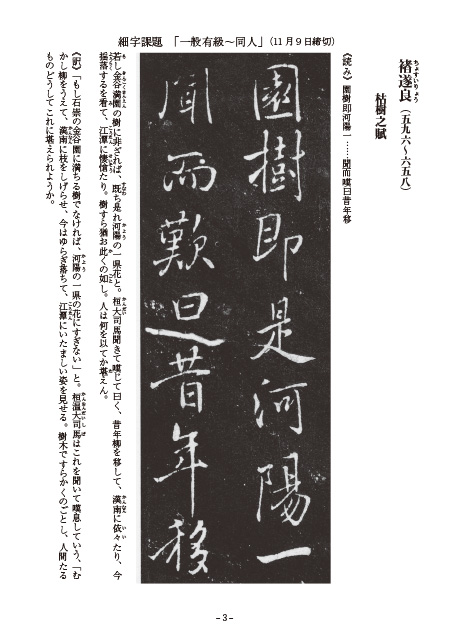 細字課題　「一般有級～同人」（11月９日締切）
褚遂良（五九六～六五八）
ちょすいりょう
枯樹之賦
《読み》園樹即河陽一……聞而嘆曰昔年移
園樹即是河陽一
聞而歎曰昔年移
若し金谷満園の樹に非ざれば、既ち是れ河陽の一県花と。桓大司馬聞きて嘆じて曰く、昔年柳を移して、漢南に依々たり、今
揺落するを看て、江潭に悽愴たり。樹すら猶お此くの如し。人は何を以てか堪えん。
《訳》「もし石崇の金谷園に満ちる樹でなければ、河陽の一県の花にすぎない」と。桓温大司馬はこれを聞いて嘆息していう、「む
かし柳をうえて、漢南に枝をしげらせ、今はゆらぎ落ちて、江潭にいたましい姿を見せる。樹木ですらかくのごとし、人間たる
ものどうしてこれに堪えられようか。
－3－